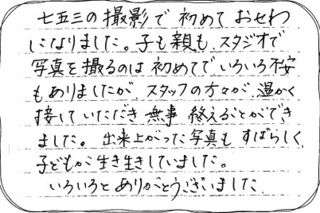 七五三の撮影で初めておせわ
になりました。子も親も、スタジオで
写真を撮るのは初めてでいろいろ不安
もありましたが、スタッフの方々が、温かく
接していただき無事終えることができ
ました。出来上がった写真もすばらしく、
子どもが生き生きしていました。
いろいろとありがとうございました